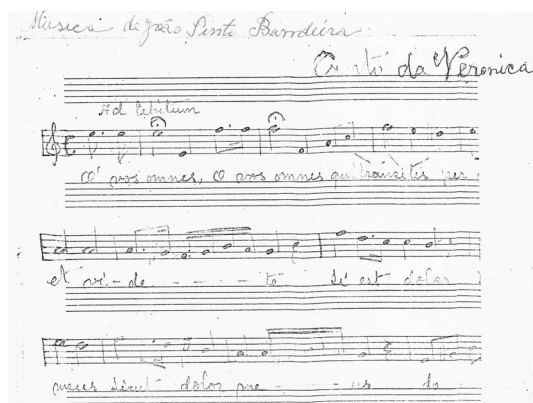 Musica de João Pinto Bandeira
Canto da Veronica
Ad libitum
O' vos omnes, O vos omnes qui transites per
et vi-de - - - - te si est dolor
meus sicut dolor me - - - us do